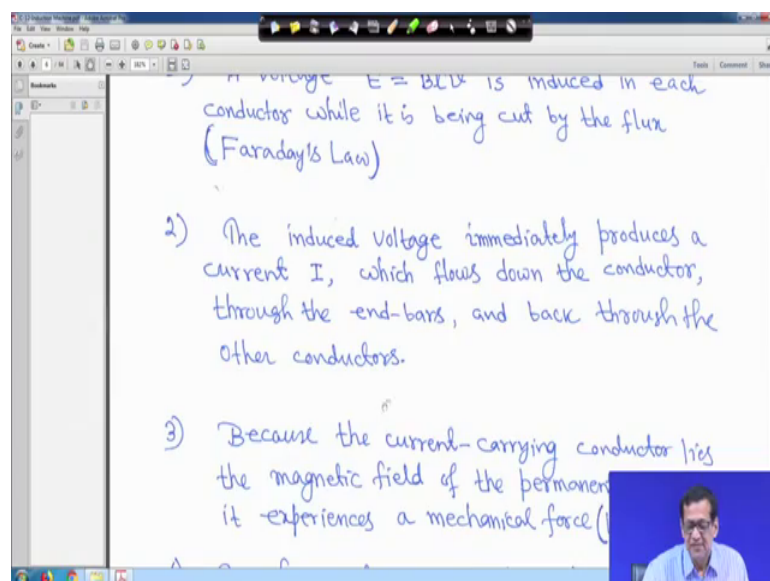 File Edit View Window Help
Create
Tools Comment
Bookmarks
A voltage E = Blv is induced in each
conductor while it is being cut by the flux
(Faraday's Law)
2) The induced voltage immediately produces a
current I, which flows down the conductor,
through the end-bars, and back through the
other conductors.
3) Because the current-carrying conductor lies
the magnetic field of the permanen
it experiences a mechanical force (